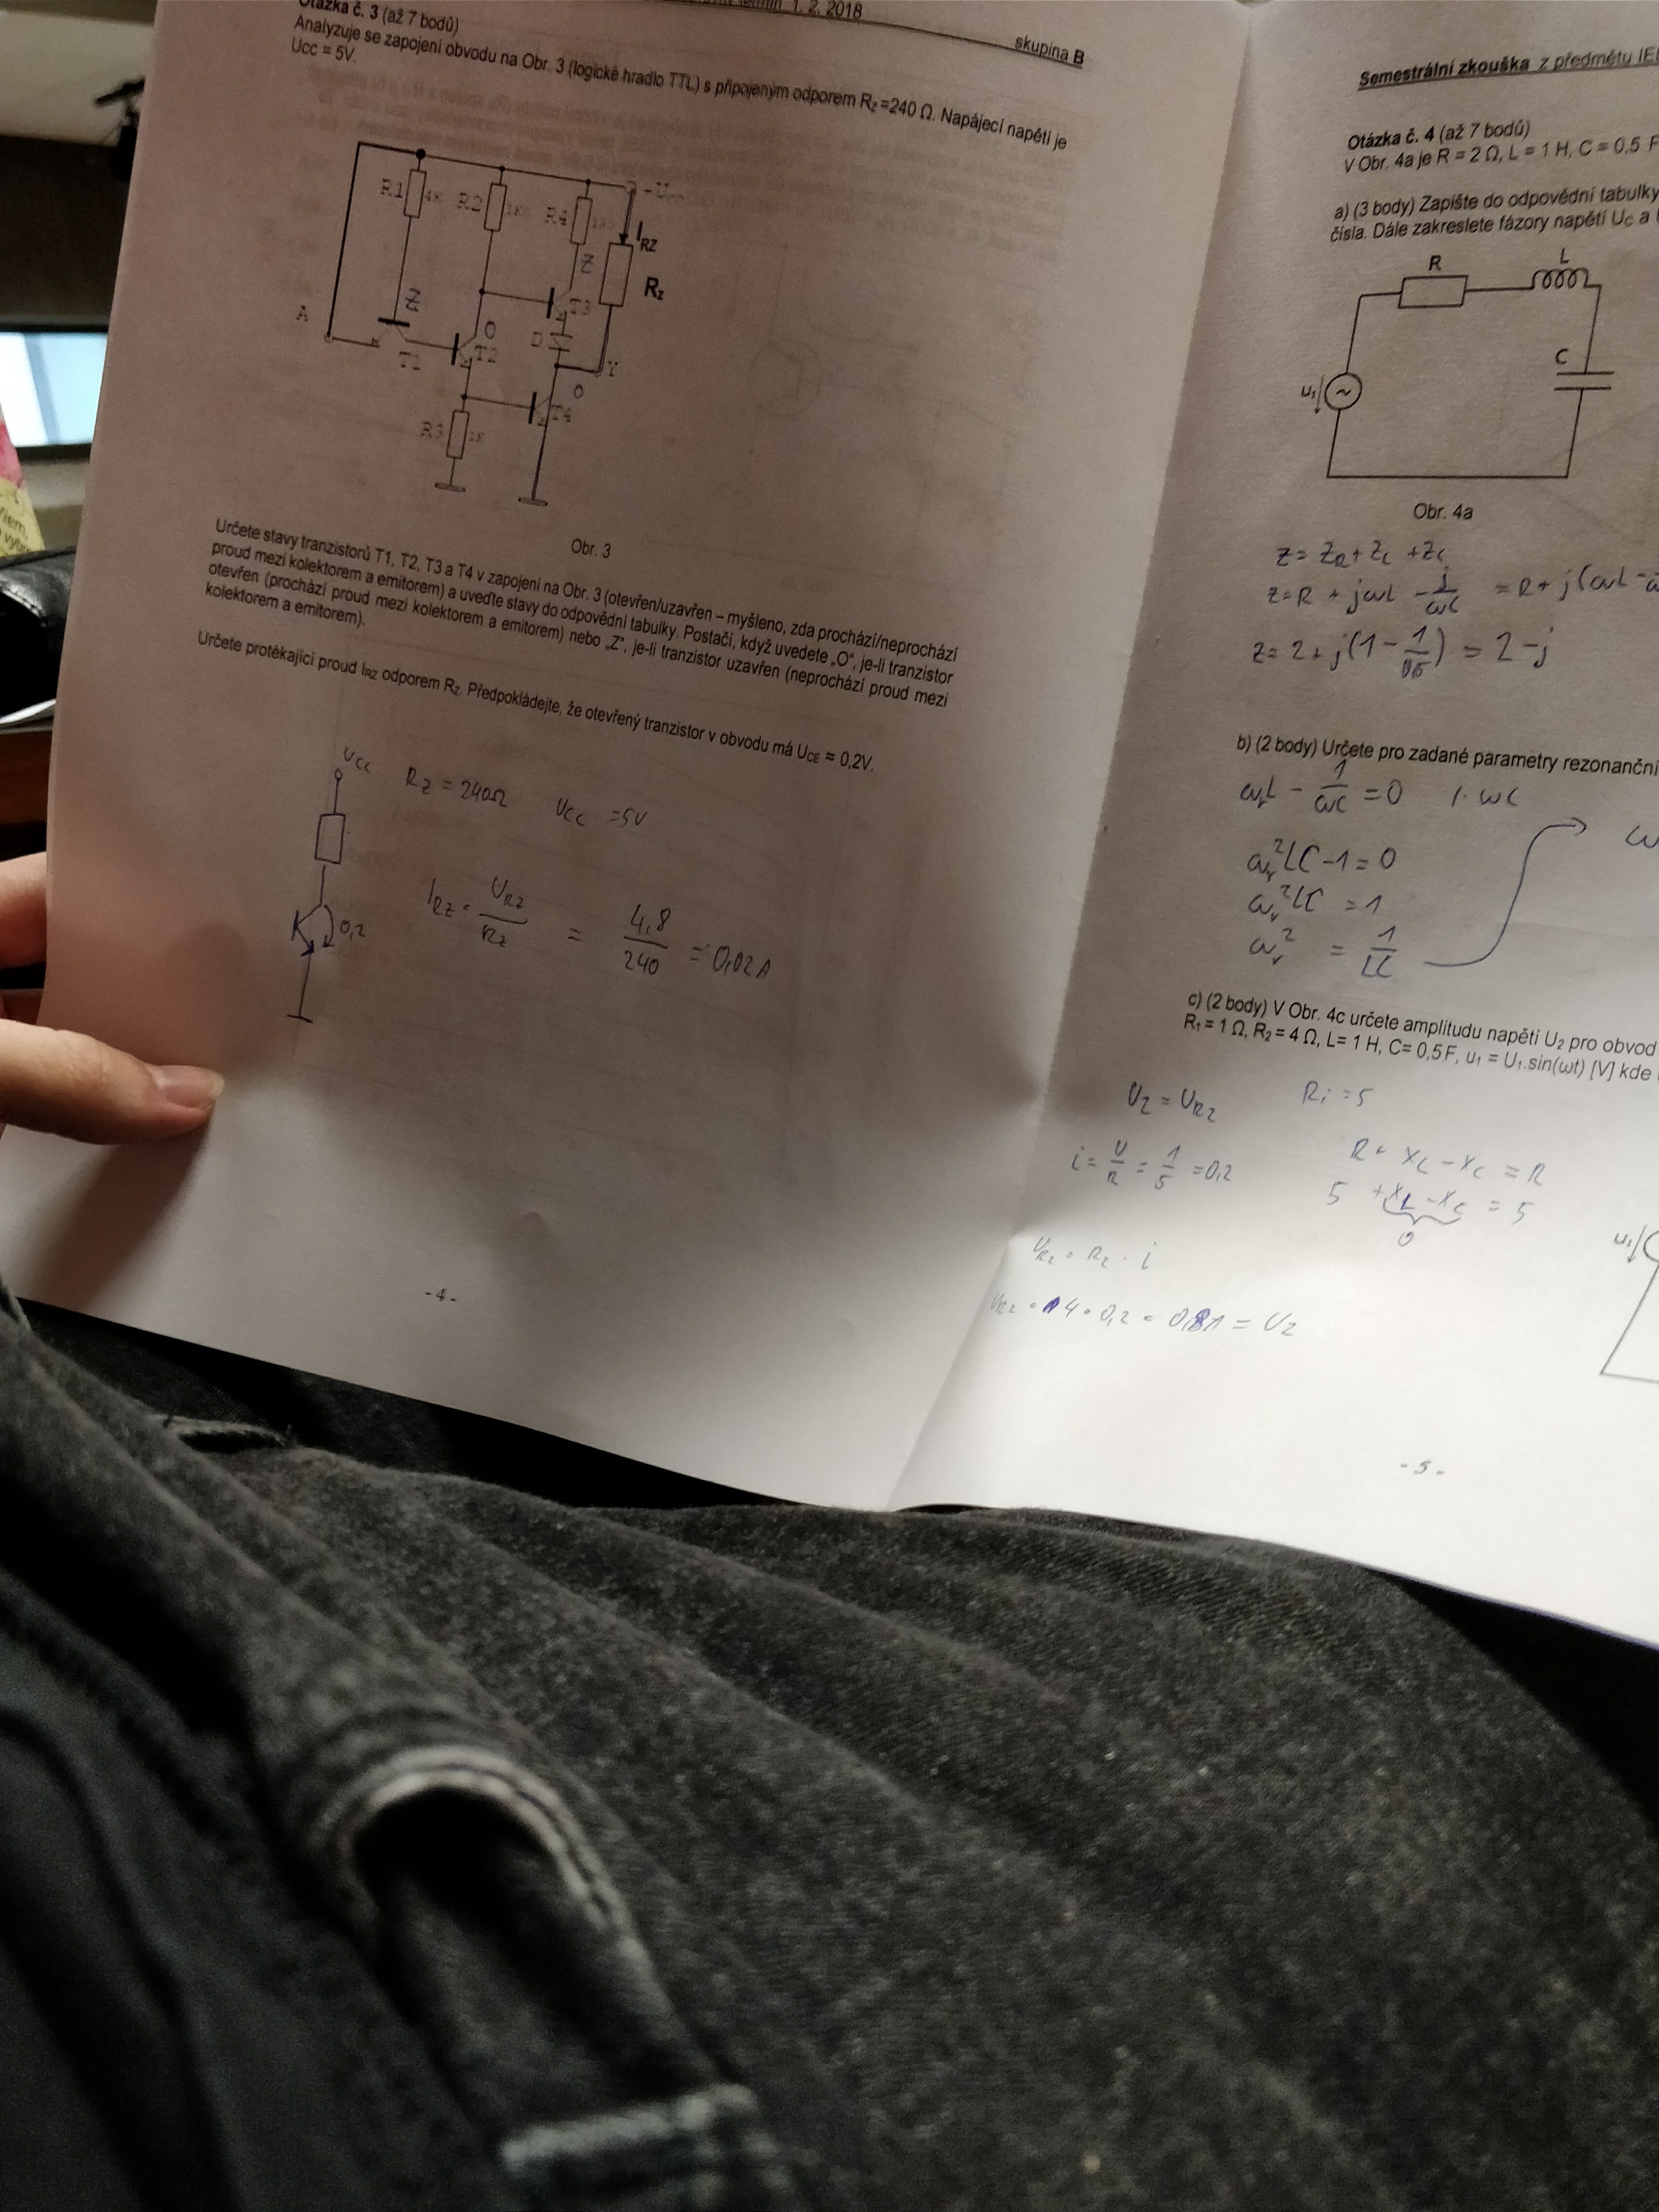 termín 1. 2. 2018
skupina B
Otázka č. 3 (až 7 bodů)
Analyzuje se zapojení obvodu na Obr. 3 (logické hradlo TTL) s připojeným odporem Rz =240 Ω. Napájecí napětí je
Ucc = 5V.
R1
4k
R2
R4
IRZ
Rz
Z
Z
A
T1
O
T2
T3
D
Y
O
T4
R3
1k
Obr. 3
Určete stavy tranzistorů T1, T2, T3 a T4 v zapojení na Obr. 3 (otevřen/uzavřen – myšleno, zda prochází/neprochází
proud mezi kolektorem a emitorem) a uveďte stavy do odpovědní tabulky. Postačí, když uvedete „O“, je-li tranzistor
otevřen (prochází proud mezi kolektorem a emitorem) nebo „Z“, je-li tranzistor uzavřen (neprochází proud mezi
kolektorem a emitorem).
Určete protékající proud IRZ odporem RZ. Předpokládejte, že otevřený tranzistor v obvodu má UCE = 0,2V.
UCC
RZ = 240Ω
UCC = 5V
0,2
IRZ = URZ/RZ = 4,8/240 = 0,02A
- 4 -
Semestrální zkouška z předmětu
Otázka č. 4 (až 7 bodů)
V Obr. 4a je R = 2 Ω, L = 1 H, C = 0,5 F
a) (3 body) Zapište do odpovědní tabulky
čísla. Dále zakreslete fázory napětí UC a
R
L
C
u1
~
Obr. 4a
Z = ZR + ZL + ZC
Z = R + jωL - j/ωC = R + j(ωL -
Z = 2 + j(1 - 1/0,5) = 2 - j
b) (2 body) Určete pro zadané parametry rezonanční
ωrL - 1/ωC = 0 /· ωC
ωr²LC - 1 = 0
ωr²LC = 1
ωr² = 1/LC
c) (2 body) V Obr. 4c určete amplitudu napětí U2 pro obvod
R1 = 1 Ω, R2 = 4 Ω, L= 1 H, C= 0,5 F, u1 = U1.sin(ωt) [V] kde
U2 = UR2
Ri = 5
i = U/R = 1/5 = 0,2
R + XL - XC = R
5 + XL - XC = 5
0
UR2 = R2 · i
u1
- 5 -